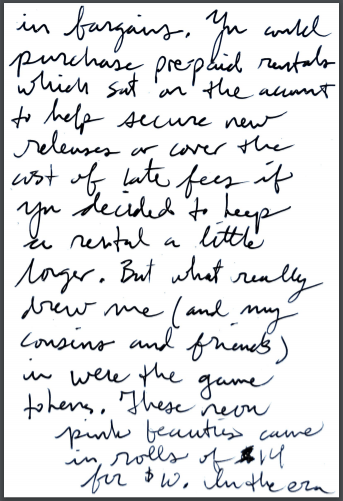 in bargains. You could
purchase pre-paid rentals
which sat on the account
to help secure new
releases or cover the
cost of late fees if
you decided to keep
a rental a little
longer. But what really
drew me (and my
cousins and friends)
in were the game
tokens. These neon
pink beauties came
in rolls of 14
for $10. In the era